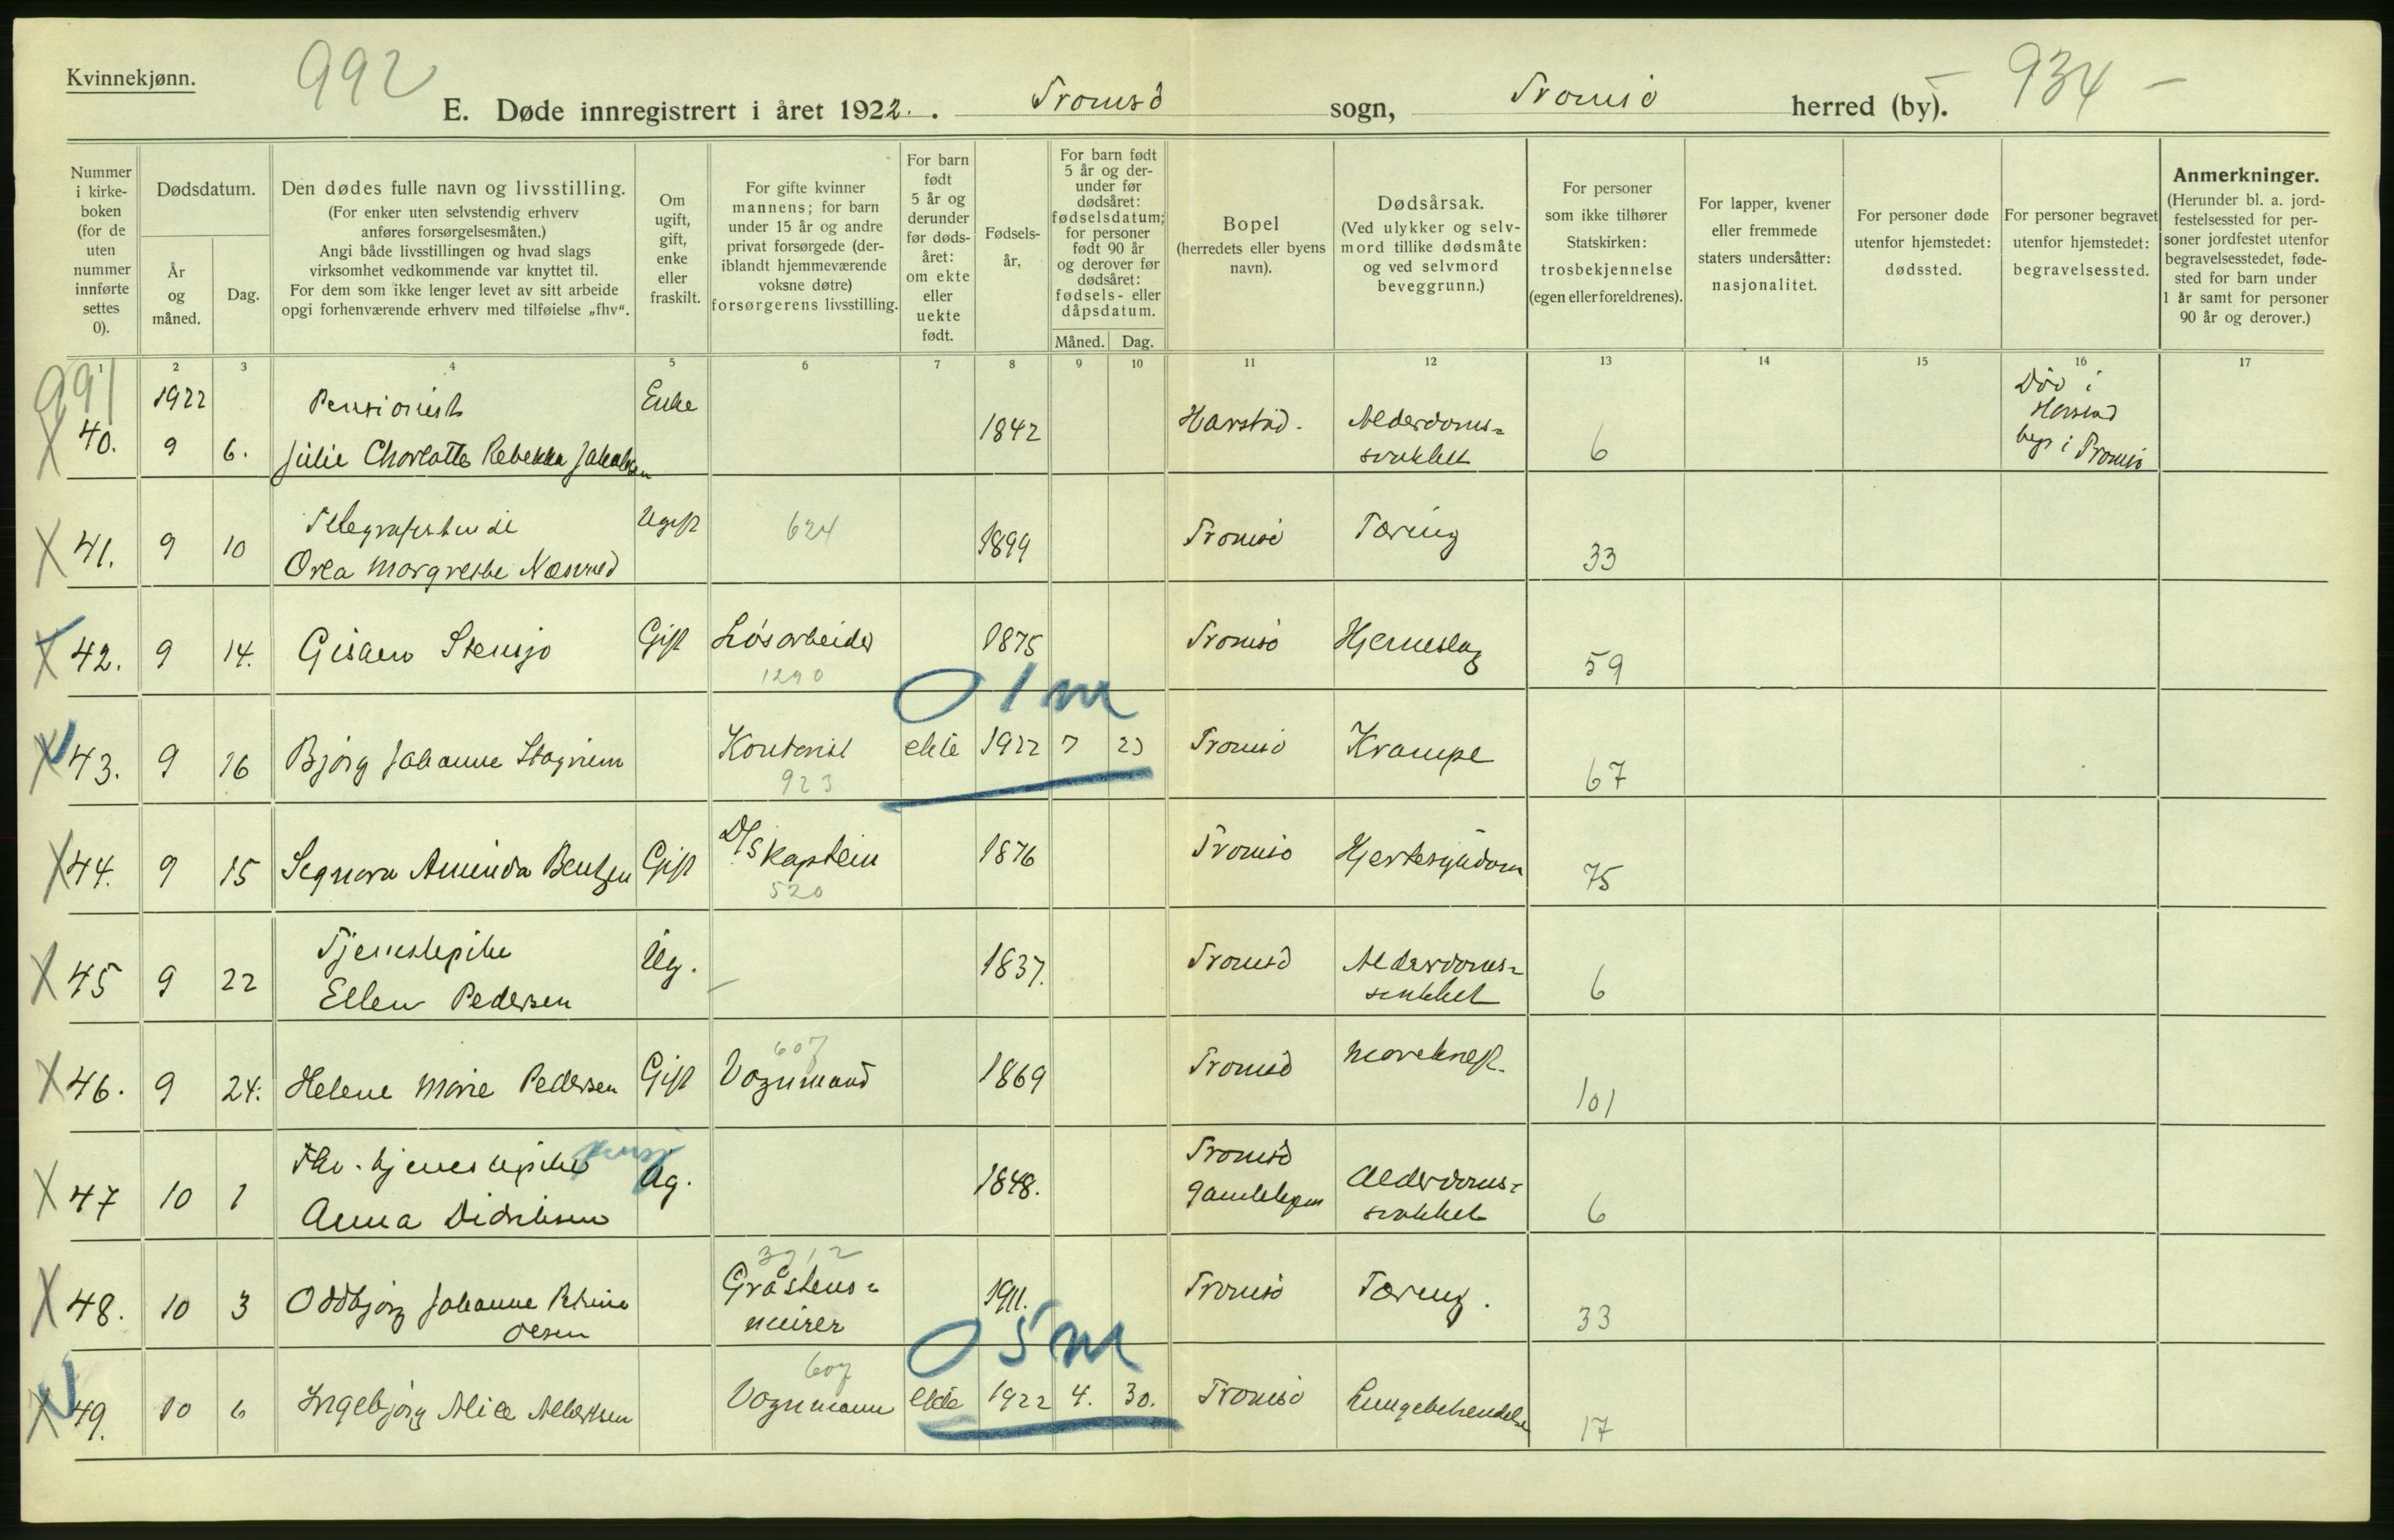 Kvinnekjønn.
992
E. Døde innregistrert i året 1922. Tromsö sogn, Tromsö herred (by). 934 –
Nummer i kirkeboken (for de uten nummer innførte settes 0).
Dødsdatum.
År og måned.
Dag.
Den dødes fulle navn og livsstilling.
(For enker uten selvstendig erhverv anføres forsørgelsesmåten.)
Angi både livsstillingen og hvad slags virksomhet vedkommende var knyttet til.
For dem som ikke lenger levet av sitt arbeide opgi forhenværende erhverv med tilføielse „fhv“.
Om ugift, gift, enke eller fraskilt.
For gifte kvinner mannens; for barn under 15 år og andre privat forsørgede (deriblandt hjemmeværende voksne døtre) forsørgerens livsstilling.
For barn født 5 år og derunder før dødsåret: om ekte eller uekte født.
Fødselsår.
For barn født 5 år og derunder før dødsåret: fødselsdatum; for personer født 90 år og derover før dødsåret: fødsels- eller dåpsdatum.
Måned. Dag.
Bopel (herredets eller byens navn).
Dødsårsak. (Ved ulykker og selvmord tillike dødsmåte og ved selvmord beveggrunn.)
For personer som ikke tilhører Statskirken: trosbekjennelse (egen eller foreldrenes).
For lapper, kvener eller fremmede staters undersåtter: nasjonalitet.
For personer døde utenfor hjemstedet: dødssted.
For personer begravet utenfor hjemstedet: begravelsessted.
Anmerkninger. (Herunder bl. a. jordfestelsessted for personer jordfestet utenfor begravelsesstedet, fødested for barn under 1 år samt for personer 90 år og derover.)
1 2 3 4 5 6 7 8 9 10 11 12 13 14 15 16 17
991
X 40. 1922 9 6. Pensionist Julie Charlotte Rebekka Jakobsen Enke 1842 Harstad. Alderdoms= svakhet 6 Död i Harstad begr i Tromsö
X 41. 9 10 Telegrafistinde Margrethe Ugift 624 1899 Tromsö Tæring 33
X 42. 9 14. Stensjo Gift Lösarbeider 1290 1875 Tromsö Hjerneslag 59
01m
X 43. 9 16 Bjørg Johanne Kontorist 923 ekte 1922 7 23 Tromsö Krampe 67
X 44. 9 15 Signora Aminda Bentzen Gift D/S kaptein 520 1876 Tromsö Hjertesygdom 75
X 45 9 22 Tjenestepike Ellen Pedersen Ug. – 1837. Tromsö Alderdoms= svakhet 6
X 46. 9 24. Helene Marie Pedersen Gift 607 Vognmand 1869 Tromsö Mavekræft. 101
X 47 10 1 Fhv. tjenestepike Anna Didriksen Ug. 1848. Tromsö gamlehjem Alderdoms= svakhet 6
X 48. 10 3 Oddbjørg Johanne Petrine Olsen 3212 Gråstens= murer 1911. Tromsö Tæring. 33
05m
X 49. 10 6 Ingebjørg Alice Albertsen 607 Vognmann ekte 1922 4. 30. Tromsö Lungebetendelse 17